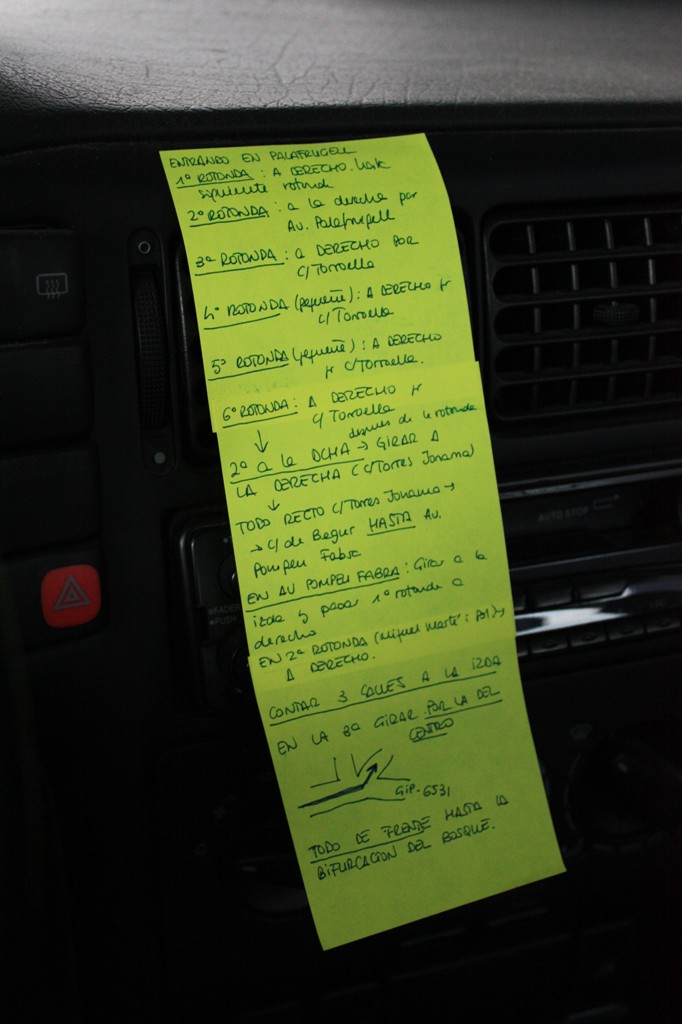 ENTRANDO EN PALAFRUGELL
1ª ROTONDA : A DERECHO hasta
siguiente rotonda
2ª ROTONDA : a la derecha por
Av. Palafrugell
3ª ROTONDA : a DERECHO POR
C/Torroella
4ª ROTONDA (pequeña) : A DERECHO
C/Torroella
5ª ROTONDA (pequeña) : A DERECHO
C/Torroella.
6ª ROTONDA : A DERECHO
C/ Torroella
después de la rotonda
↓
2ª a la DCHA → GIRAR A
LA DERECHA (C/Torres Jonama)
↓
TODO RECTO C/Torres Jonama →
→ C/ de Begur HASTA AV.
Pompeu Fabra
EN AV POMPEU FABRA : Girar a la
izda y pasar 1ª rotonda a
derecho
EN 2ª ROTONDA (Miquel Martí i Pol) →
A DERECHO.
CONTAR 3 CALLES A LA IZDA
EN LA 3ª GIRAR POR LA DEL
CENTRO
GIP-6531
TODO DE FRENTE HASTA LA
BIFURCACION DEL BOSQUE.
FADER
PUSH
AUTO STOP